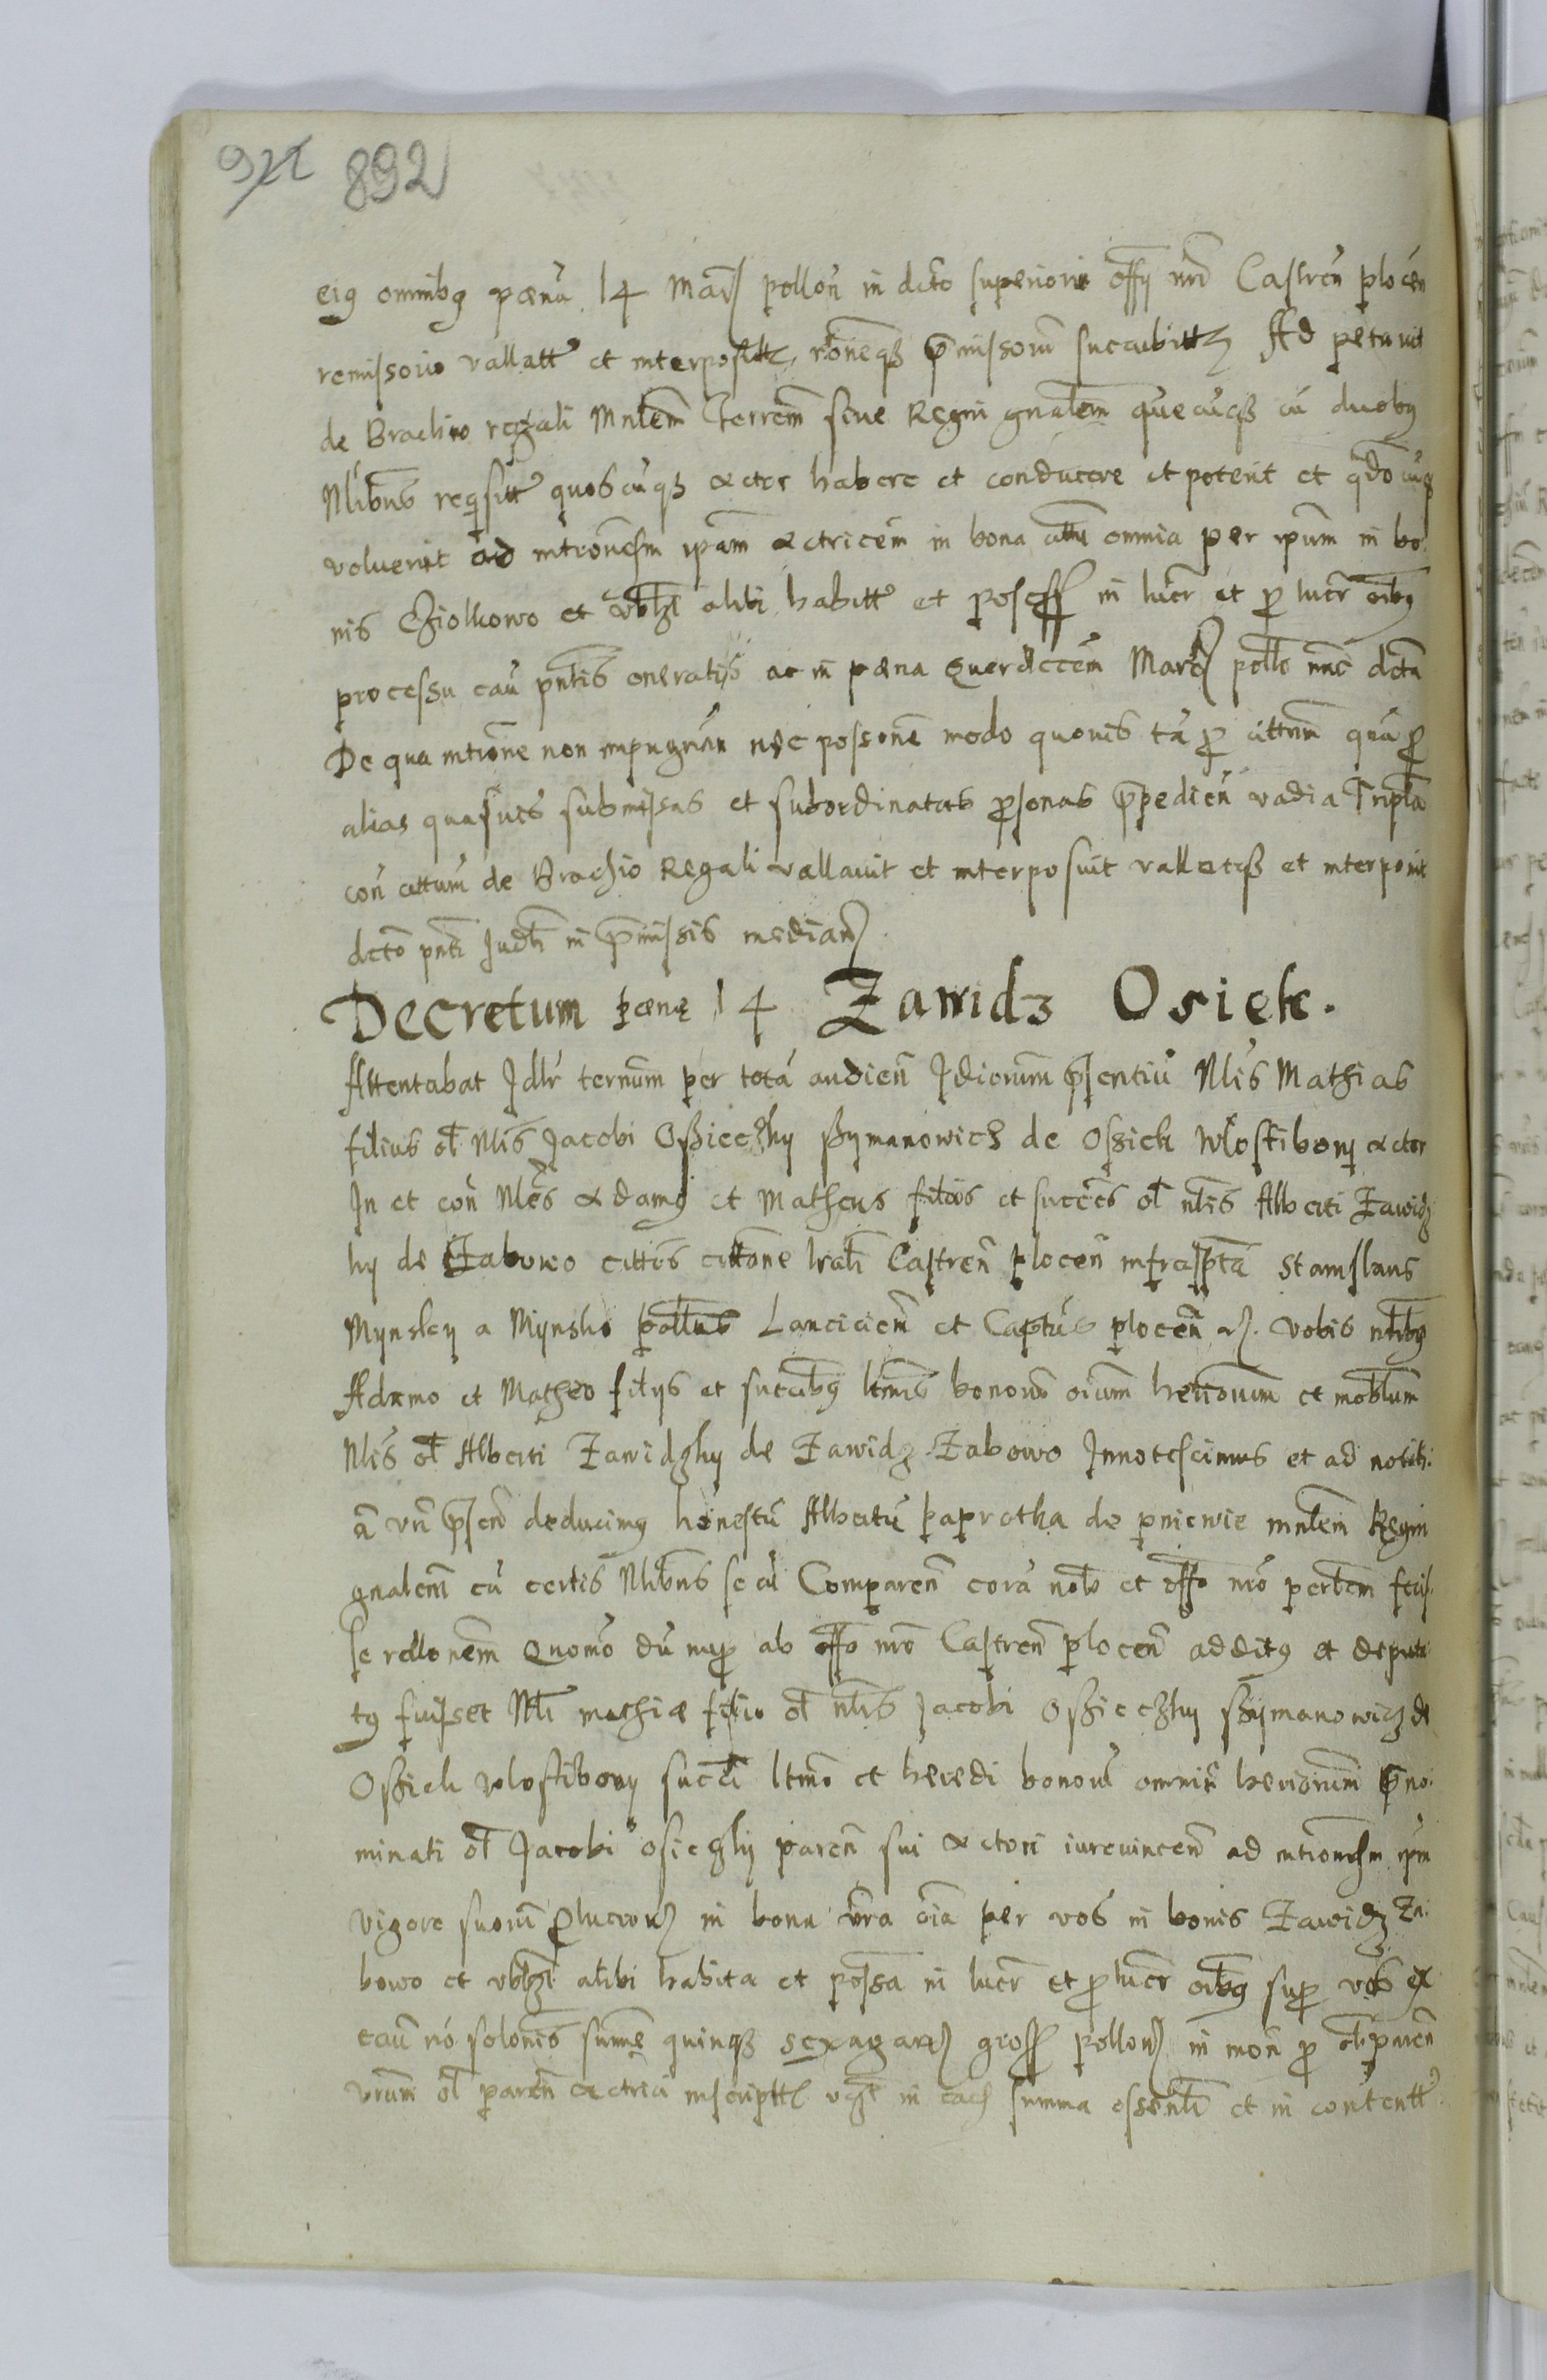 892
eig omnibg pœna 14 Marc pollon in dcto superioris offy nrd Castren plocen
remissorio vallatt et interposittt, roneqz pmissorum succubittz Ad petavit
de Brachio regali Mnlem Terrem sive Regni gnalem quecuqz cu duobg
Nlibus reqsitt quoscuqz actor habere et conducere et poterit et qdocuqz
voluerit ad mtronesm ipam actricem in bona attn omnia per ipum in bo
nis Cziolkowo et vblzt alibi habitt et possess in lucr et p lucr oibg
processu cau pntis oneratis ac in pœna querdecem Marc pollo nunc dcta
De qua mtione non impugnan nec possone modo quovis ta p cittum qua p
alias quasvis submissas et subordinatas psonas ppedien vadia Tripla
con cittum de Brachio Regali vallavit et interposuit vallatqz et interponit
dcto pnti Judti in pmissis median
Decretum pœnę 14 Zawidz Osiek.
Attentabat Jdlr ternum per tota audien Jdiciorum psentiu Nlis Mathias
filius ol Nlis Jacobi Ossieczky Szymanowicz de Ossiek Wlostibory actor
In et con Nles Adamg et Matheus filios et succes ol nlis Alberti Zawidz
ky de Zabowo cittos cittone lrali Castren plocen infrascpta Stanislaus
Mynsky a Mynsko pallus Lancicien et Captus plocen rc. vobis nlibg
Adamo et Matheo filys et succibg ltmis bonorum oium herioum et mobilum
Nlis ol Alberti Zawidzky de Zawidz Zabowo Innotescimus et ad notiti:
a vri psen deducimg honestu Albertu paprotka de pniewie mnlem Regni
gnalem cu certis Nlibus se cu Comparen cora nob et offo nro pertem fecis:
se rellonem Quomo du nup ab offo nro Castren plocen additg et deputa
tg fuisset Nli mathiæ filio ol nlis Jacobi Ossieczky Szymanowicz de
Ossiek wlostibory succi ltmo et heredi bonoru omniu heriorum pno:
minati ol Jacobi osieczky paren sui actori iurevincen ad mtronesm ipm
vigore suorum plucrorum in bona vra oia per vos in bonis Zawidz Za:
bowo et vblzt alibi habita et possa in lucr et p lucr oibg sup vos ex
cau no solonis summę quinqz sexagarum gross pollon in mon p ol paren
vrum ol paren actrici inscriptt vzt in eadem summa essentli et in contentt